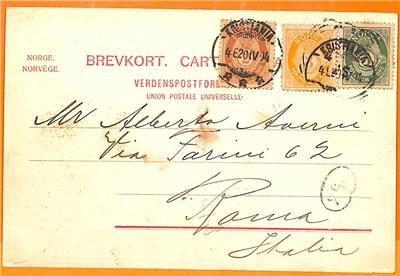 NORGE.
NORVÈGE.
BREVKORT. CART
VERDENSPOSTFORE
UNION POSTALE UNIVERSELLE.
KRISTIANIA
20 IV 04
KRISTIANIA
NORGE
Mr Alberto Averni
Via Farini 62
Roma
Italia